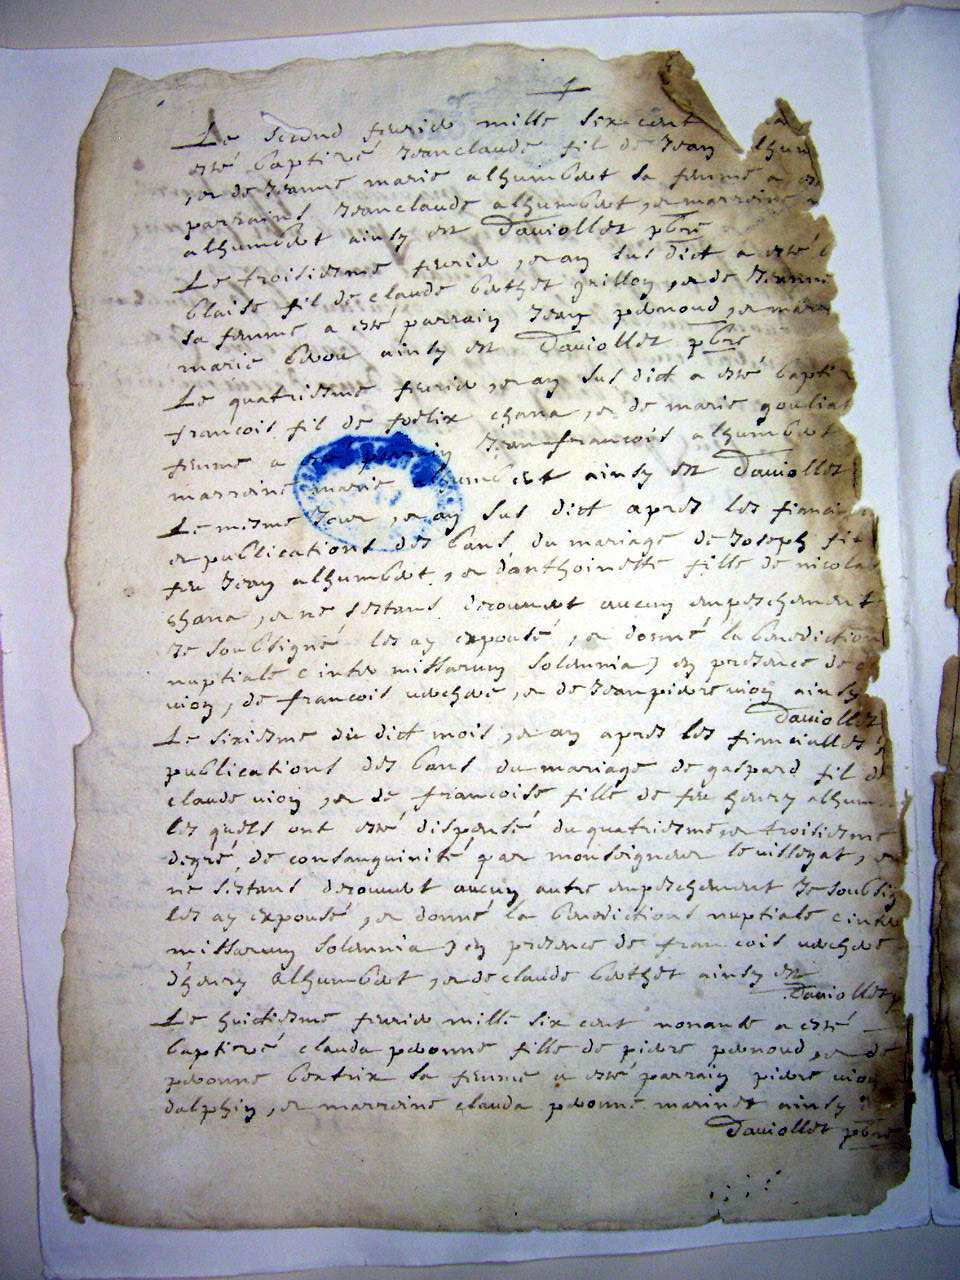 Le second feurier mille six cent
esté baptizé Jeanclaude fil de Jean alhum
, et de Jeanne marie alhumbert sa femme a es
parrains Jeanclaude alhumbert , et marraine
alhumbert ainsy est Dauiollet pbre
Le troisiesme feurier , et an sus dict a esté b
blaise fil de claude berthet grillon , et de Jeanne
sa femme a esté parrain Jean pernoud , et marr
marie ainsy est Dauiollet pbre
Le quatriesme feurier , et an sus dict a esté bapti
francois fil de foelix chana , et de marie
femme a esté parrain Jean francois alhumbert
marraine marie humbert ainsy est Dauiollet
Le mesme Jour , et an sus dict apres les fianci
et publications des bans du mariage de Joseph fi
feu Jean alhumbert , et d'anthoinette fille de nicolas
chana , et ne s'estans decouuert aucun empeschement
Je soubsigné les ay expousé , et donné la benediction
nuptiale ( inter missarum solemnia ) en presence de
uion , de francois uerchere , et de Jeanpierre uion ainsy
Dauiollet
Le sixiesme du dict mois , et an apres les fiancialles
publications des bans du mariage de gaspard fil de
claude uion , et de francoise fille de feu henry alhum
les quels ont esté dispensé du quatriesme et troisiesme
degré de consanguinité par monseigneur leuillegat , et
ne s'estans decouuert aucun autre empeschement Je soubsig
les ay expousé , et donné la benediction nuptiale ( inter
missarum solemnia ) en presence de francois uerchere
d'henry alhumbert , et de claude berthet ainsy est
Dauiollet
Le huictiesme feurier mille six cent nonante a esté
baptizé clauda pernonne fille de pierre pernoud , et de
pernonne bextrix sa femme a esté parrain pierre uion
dalphin , et marraine clauda pernonne marinet ainsy
Dauiollet pbre